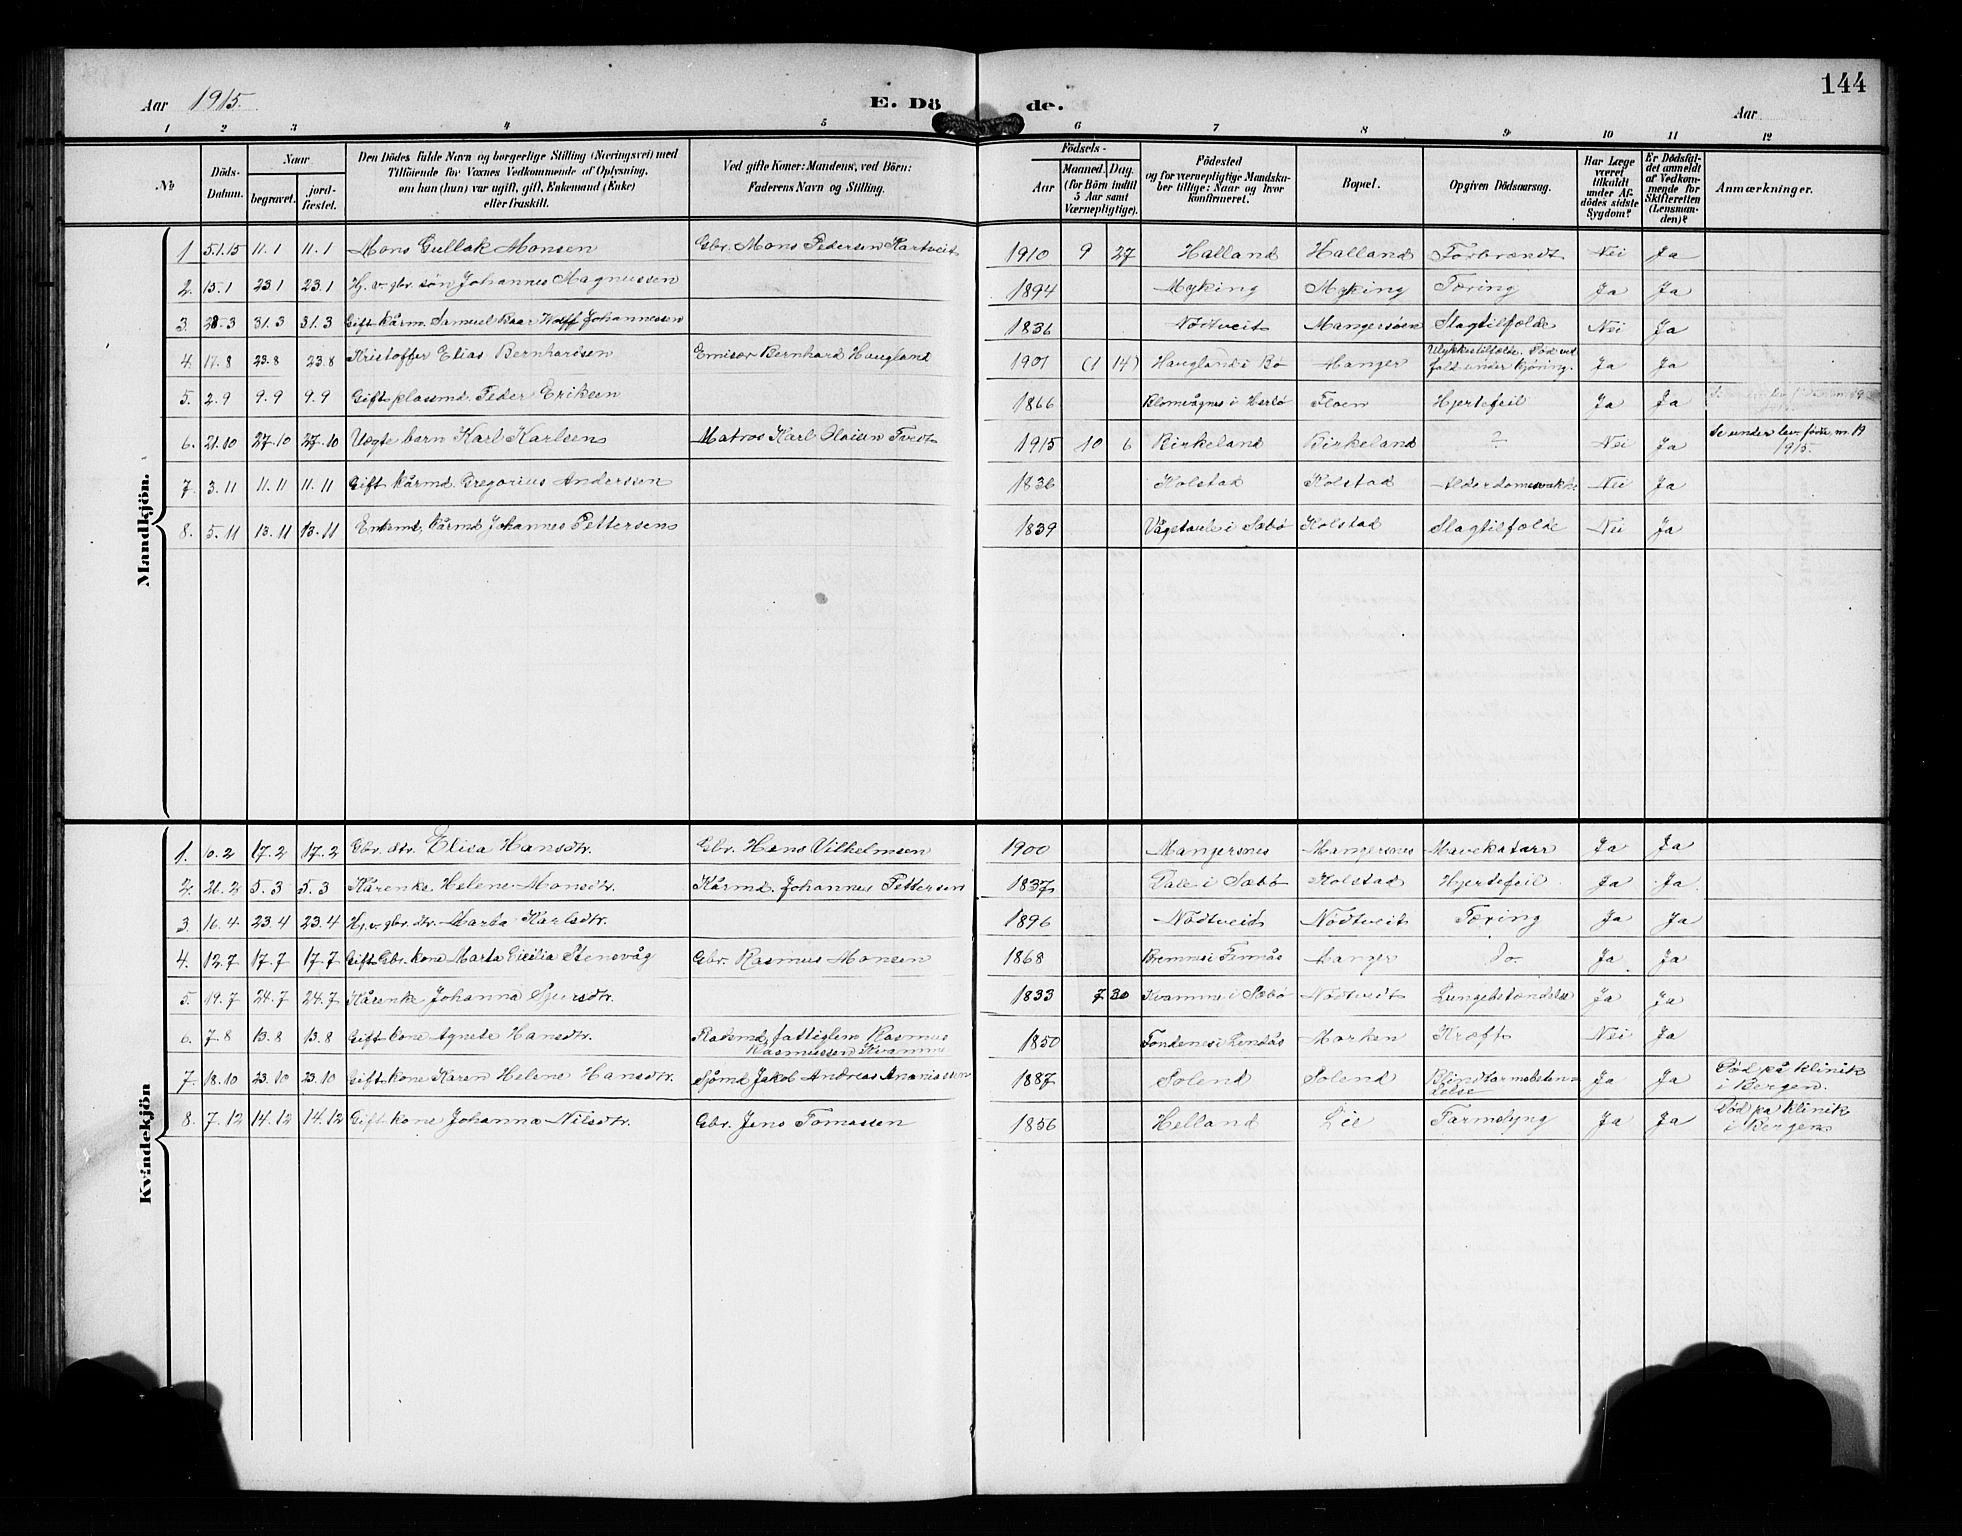 144
Aar 1915. E. Dö de. Aar
1 2 3 4 5 6 7 8 9 10 11 12
No
Döds-Datum.
Naar
begravet.
jord-fæstet.
Den Dödes fulde Navn og borgerlige Stilling (Næringsvei) med
Tilföiende for Voxnes Vedkommende af Oplysning,
om han (hun) var ugift, gift, Enkemand (Enke)
eller fraskilt.
Ved gifte Koner: Mandens, ved Börn:
Faderens Navn og Stilling.
Födsels-
Aar
Maaned. Dag.
(for Börn indtil
5 Aar samt
Værnepligtige).
Födested
og for værnepligtige Mandska-
ber tillige: Naar og hvor
konfirmeret.
Bopæl.
Opgiven Dödsaarsag.
Har Læge
været
tilkaldt
under Af-
dödes sidste
Sygdom?
Er Dödsfal-
det anmeldt
af Vedkom-
mende for
Skifteretten
(Lensman-
den)?
Anmærkninger.
Mandkjön.
1 5.1.15 11.1 11.1 Mons Gullak Monsen Gbr. Mons Pedersen Hartveit 1910 9 27 Halland Halland Forbrændt Nei Ja
2. 15.1 23.1 23.1 Hj. v. gbr. sön Johannes Magnussen 1894 Myking Myking Tæring Ja Ja
3. 28.3 31.3 31.3 Gift kårm. Samuel Wolff Johannessen 1836 Nödtveit Mangersöen Slagtilfælde Nei Ja
4. 17.8 23.8 23.8 Kristoffer Elias Bernhardsen Emisær Bernhard Haugland 1901 (1 14) Haugland i Bö Manger Ulykkestilfælde. Död ved
fald under kjöring. Ja Ja
5. 2.9 9.9 9.9 Gift plassmd. Peder Eriksen 1866 Blomvågnes i Herlö Floen Hjertefeil Ja Ja
6. 21.10 27.10 27.10 Uægte barn Karl Karlsen Matros Karl Olaisen 1915 10 6 Birkeland Birkeland ? Nei Ja Se under lev. födte, nr. 19
1915.
7. 3.11 11.11 11.11 Gift kårmd. Gregorius Anderssen 1836 Kolstad Kolstad Alderdomssvakh. Nei Ja
8. 5.11 13.11 13.11 Enkemd. kårmd Johannes Pettersen 1839 i Sæbö Kolstad Slagtilfælde Nei Ja
Kvindekjön
1. 10.2 17.2 17.2 Gbr. dtr. Elisa Hansdtr. Gbr. Hans Vilhelmsen 1900 Mangersnes Mangersnes Mavekatarr Ja Ja
2. 26.2 5.3 5.3 Kårenke Helene Monsdtr. Kårmd. Johannes Pettersen 1837 Dale i Sæbö Kolstad Hjertefeil Ja Ja.
3 16.4 23.4 23.4 Hj. v. gbr. dtr. Marta Karlsdtr. 1896 Nödtveit Nödtveit Tæring Ja Ja
4. 12.7 17.7 17.7 Gift Gbr. kone Marta Cicilia Stensvåg Gbr. Rasmus Monsen 1868 Bremnes i Finnås Manger Do Ja Ja
5. 19.7 24.7 24.7 Kårenke Johanna Sjursdtr. 1833 7 30 Kvamme i Sæbö Nödtvedt Lungebetændelse Ja Ja
6. 7.8 13.8 13.8 Gift kone Agnete Hansdtr. fattiglem Rasmus
Rasmussen Kvamme 1850 Fondenes i Lindås Marken Kræft Nei Ja
7. 18.10 23.10 23.10 Gift kone Karen Helene Hansdtr. Sjömd Jakob Andreas Ananiassen 1887 Solend Solend Blindtarmsbetæn-
delse Ja Ja Död på klinik
i Bergen.
8. 7.12 14.12 14.12 Gift kone Johanna Nilsdtr. Gbr. Jens Tomassen 1856 Helland Lie Tarmslyng Ja Ja Död på klinik
i Bergen